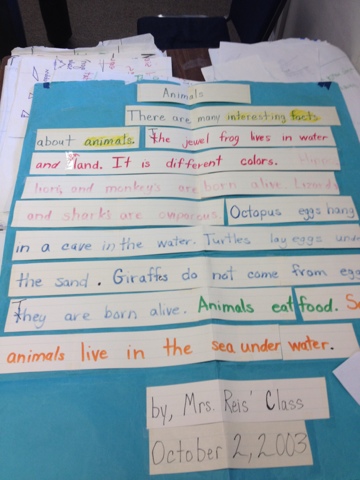 Animals
There are many interesting facts
about animals. The jewel frog lives in water
and land. It is different colors. Hippos,
lions, and monkeys are born alive. Lizards
and sharks are oviparous. Octopus eggs hang
in a cave in the water. Turtles lay eggs und
the sand. Giraffes do not come from egg
They are born alive. Animals eat food. So
animals live in the sea under water.
by, Mrs. Reis' Class
October 2, 2003